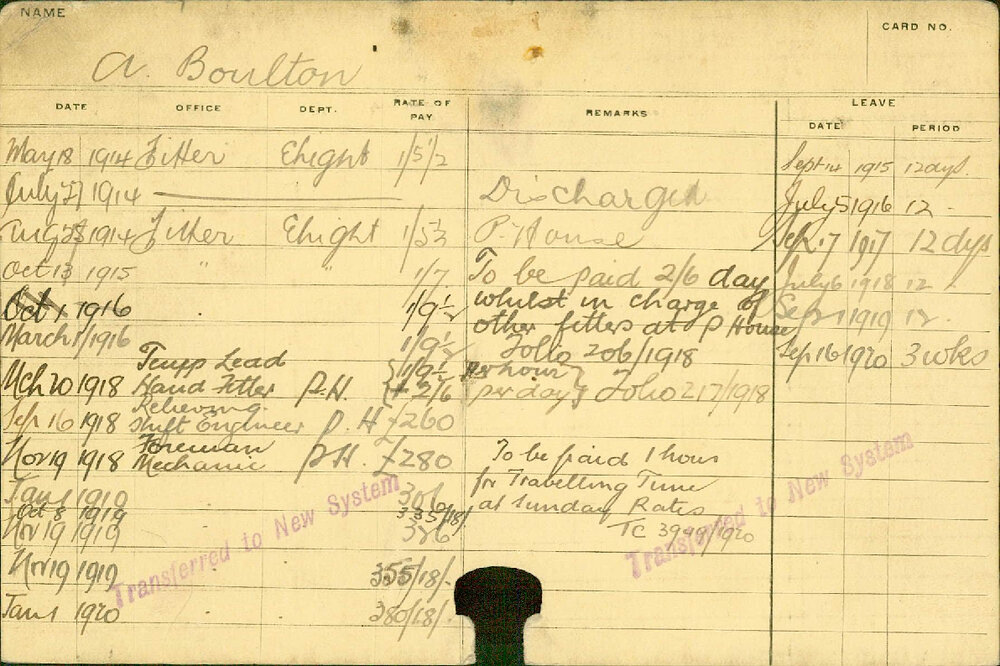 NAME
CARD NO.
A. Boulton
DATE OFFICE DEPT. RATE OF PAY REMARKS LEAVE
DATE PERIOD
May 18 1914 Fitter Elight 1/5½ Sept 14 1915 12 days.
July 27 1914 Discharged July 5 1916 12 -
Aug 25 1914 Fitter Elight 1/5½ P. House Sep. 17 1917 12 dys
Oct 13 1915 " " 1/7 To be paid 2/6 day July 6 1918 12 -
Oct 1 1916 1/9½ whilst in charge of Sep 1 1919 12 -
other fitters at P House
March 1/1916 1/9½ Folio 206/1918 Sep 16 1920 3 wks
Mch 20 1918 Temp Lead Hand Fitter P.H. {1/9½ + 2/6 per hour} per day} Folio 217/1918
Sep 16 1918 Relieving Shift Engineer P. H £260
Nov 19 1918 Foreman Mechanic P.H. £280 To be paid 1 hour
Jan 1 1910 306 for Travelling Time
Oct 8 1919 335/18/. at Sunday Rates
Nov 19 1919 326 TC 1920
Nov 19 1919 355/18/-
Jan 1 1920 380/18/-
Transferred to New System
Transferred to New System